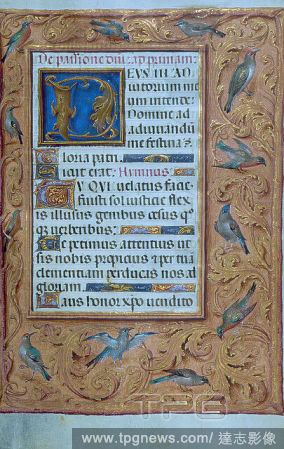 De passione dñi: ad primam:
DEVS IN AD
iutorium me
um intende:
Domine ad
adiuuandũ
me festina:
Gloria patri.
Sicut erat. Hymnus.
TV QVI velatus facie
fuisti sol iustitie flex
is illusus genibus cesus q
q̃ verberibus:
Te petimus attentius ut
sis nobis propicius et per tuã
clementiam perducas nos ad
gloriam.
Laus honor xpo vendito
TPG
www.tpgnews.com/達志影像